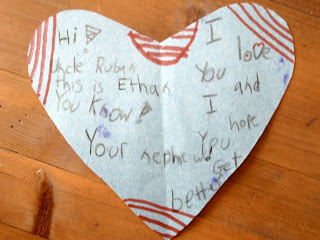 Hi
Uncle Ruben
This is Ethan
You Know!
Your nephew!
I
love
You and
I
hope
You
Get
better